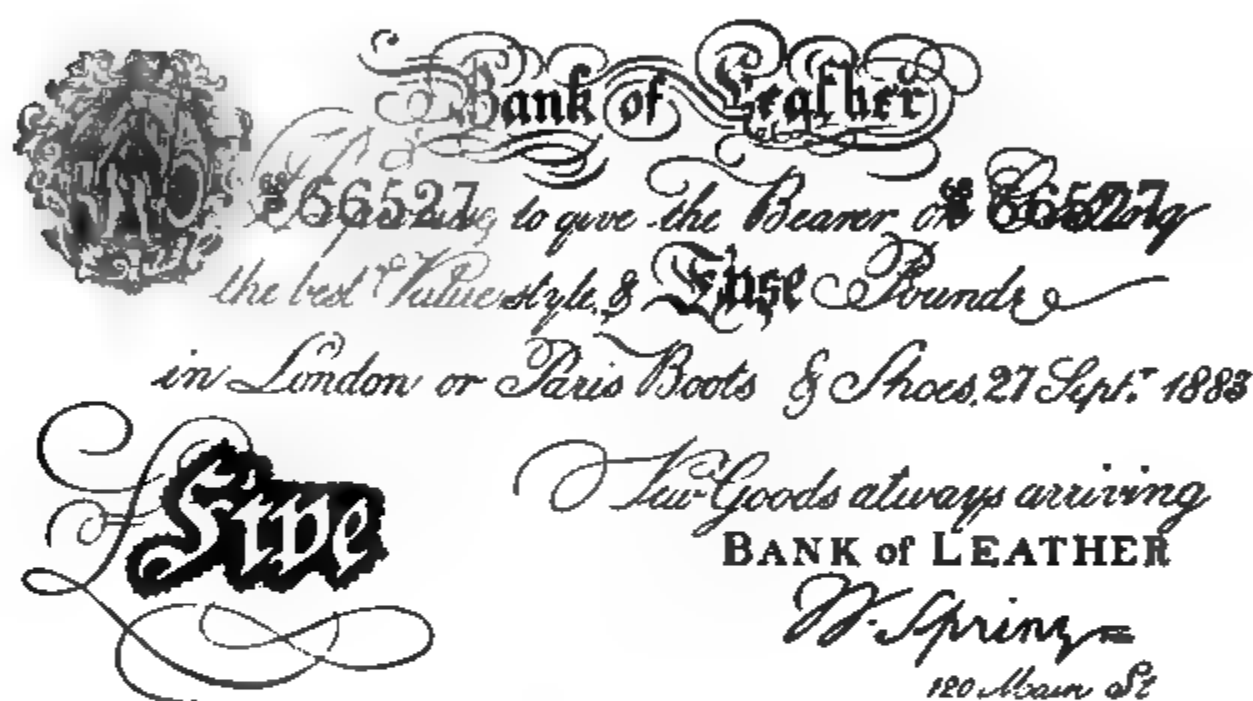 Bank of Leather
66527 to give the Bearer 66527
the best Value style, & Pounds
in London or Paris Boots & Shoes, 27 Sept. 1883
Five
New Goods always arriving
BANK of LEATHER
W. Spring
120 Main St